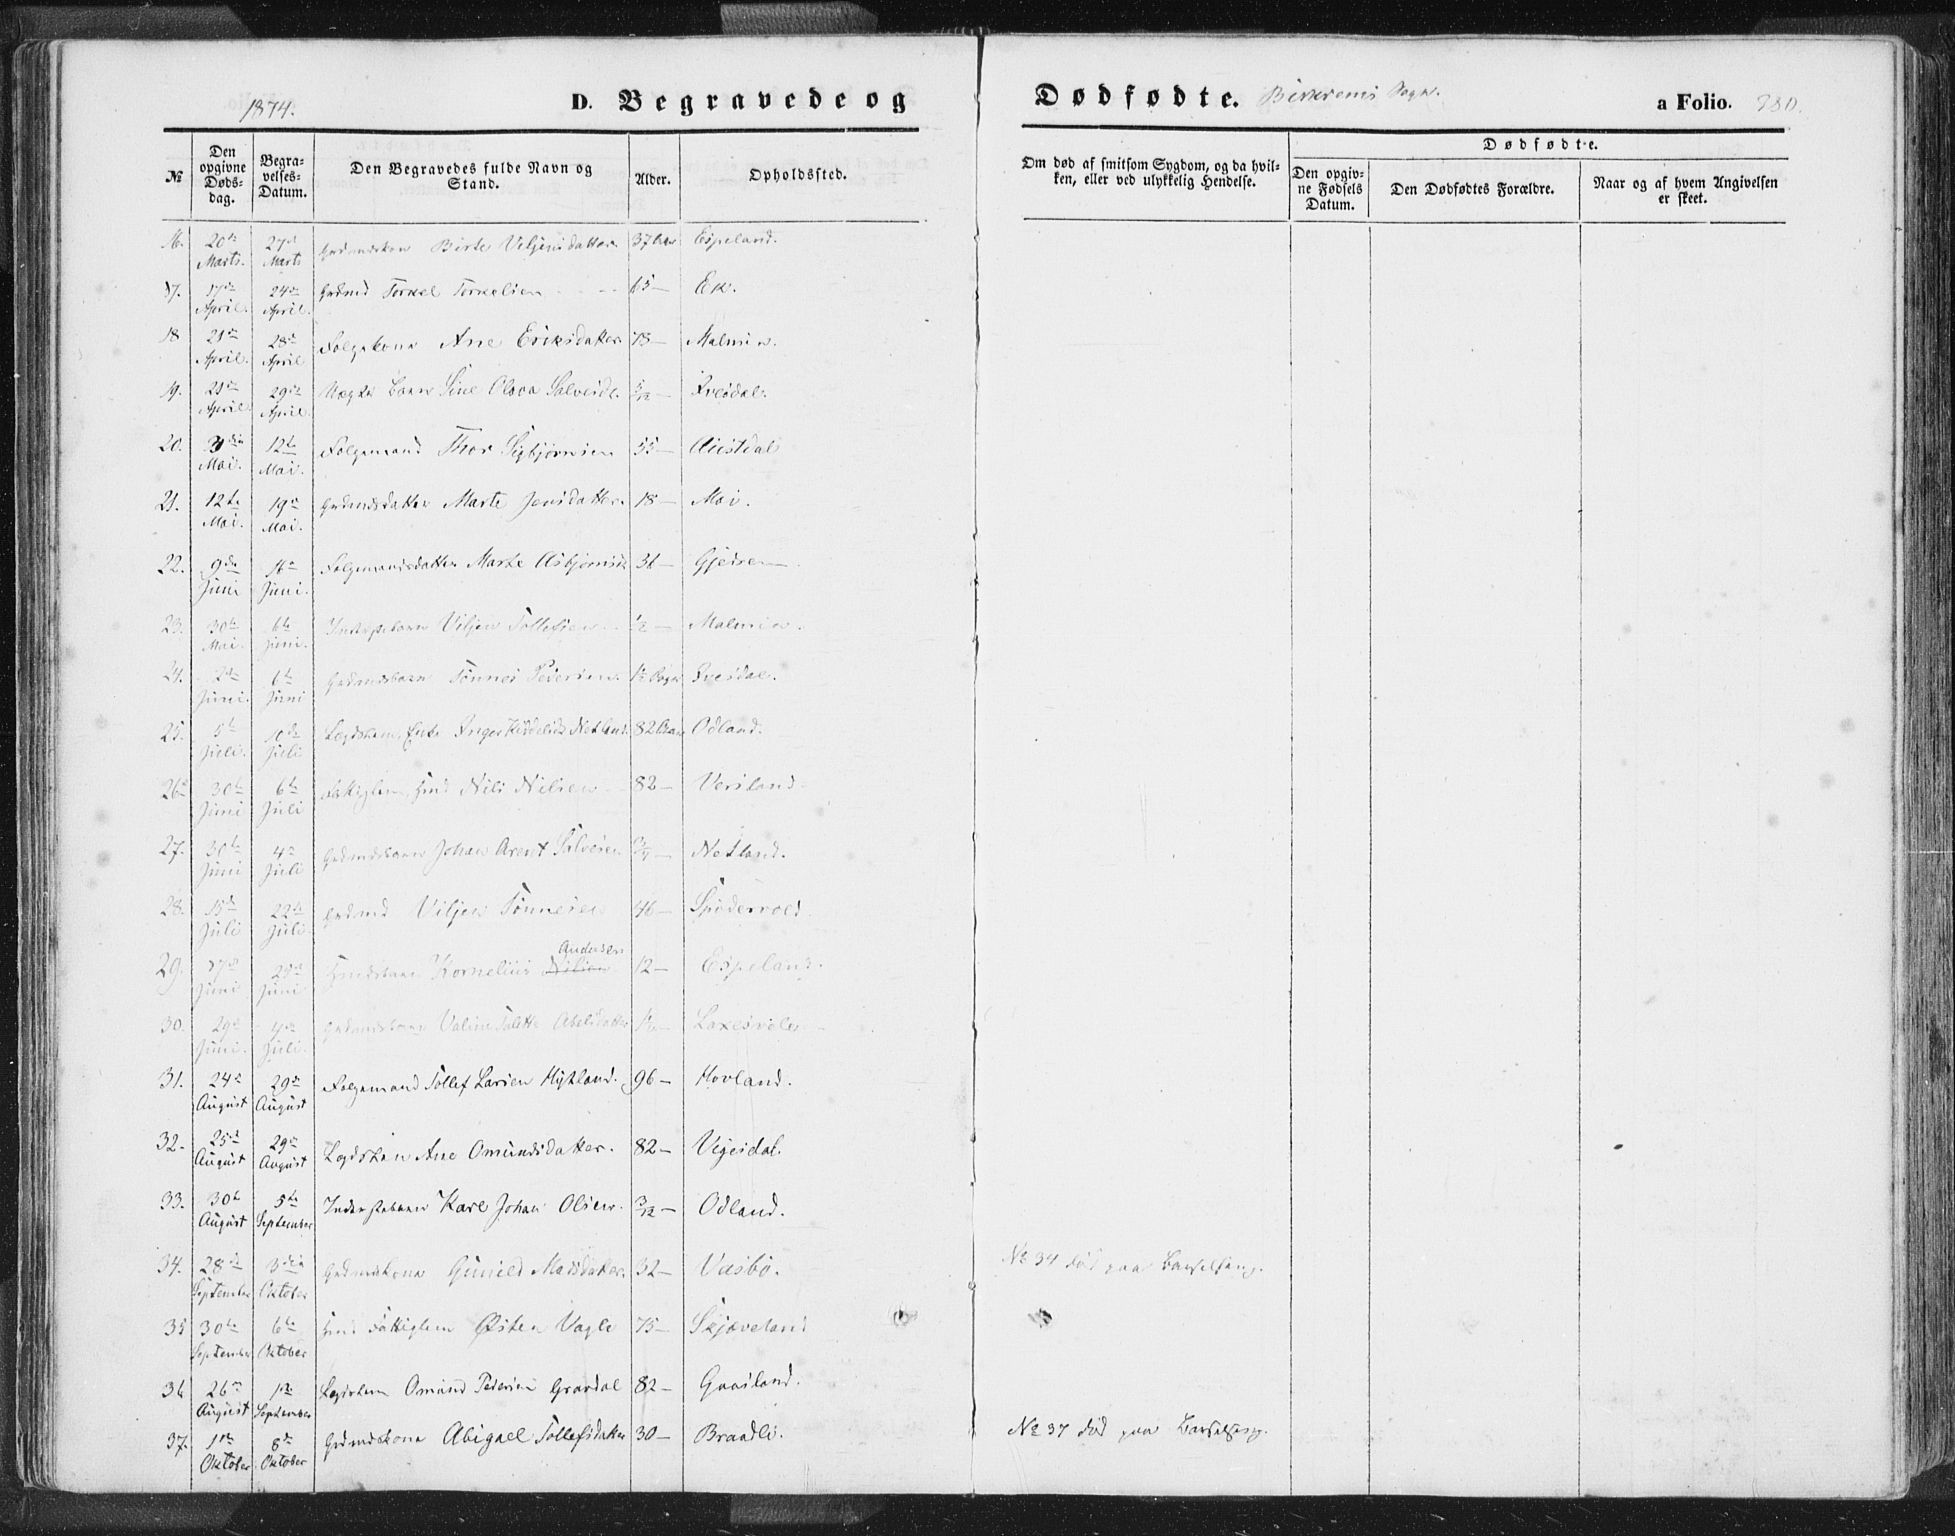 1874.
D. Begravede og
Dødfødte. Birkrems Sogn.
a Folio. 280.
№
Den opgivne Døds-dag.
Begra-velses-Datum.
Den Begravedes fulde Navn og Stand.
Alder.
Opholdssted.
Om død af smitsom Sygdom, og da hvil-ken, eller ved ulykkelig Hendelse.
Dødfødte.
Den opgiv-ne Fødsels Datum.
Den Dødfødtes Forældre.
Naar og af hvem Angivelsen er skeet.
16. 20de Marts. 27de Marts Grdmdskone Birte Veljensdatter 37 Aar Espeland.
17. 17de April. 24de April. Grdmd Torkel Torkelsen 65 — Ek.
18 21de April. 28de April Folgekone Ane Eriksdatter 78 — Malmin.
19. 21de April 29de April. Barn Sine Olava 5/12 —
20. 3die Mai. 12te Mai. Folgemand Thor Sigbjørnsen 55 — Austdal
21. 12te Mai. 19de Mai. Grdmdsdatter Marte Jensdatter. 18 — Moi.
22. 9de Juni 16de Juni. Folgemandsdatter Marte Asbjørnsd. 36 — Gjedrem
23. 30te Mai. 6te Juni. Inderstebarn Viljen Tollefsen 1/2 — Malmin.
24. 2de Juni. 6te Juni Grdmdsbarn Tønnes Pedersen
25. 5te Juli. 10de Juli Enke Inger Netland. 82 Aar Odland.
26 30te Juni 6te Juli Fattiglem, Hmd Nils Nilsen 82 — Versland
27. 30te Juni 4de Juli Grdmdsbarn Johan Arent 3/4 — Netland.
28. 15de Juli 22de Juli Grdmd Viljen Tønnesen 46 — Spødervold
29. 17de Juni 29de Juni Hmdsbarn Kornelius Nilsen Andersen 12 — Espeland.
30. 29de Juni. 4de Juli. Grdmdsbarn Valine Talette Abelsdatter Laxesvele
31. 24de August 29de August Folgemand Tollef Larsen Hytland. 96 — Hovland.
32. 25de August 29de August Lægdslem Ane Omundsdatter. 82 — Vegesdal.
33. 30te August 5te September Inderstebarn Karl Johan Olsen. 3/12 — Odland.
34. 28de September 3die Oktober Grdmdskone Gunild Madsdatter. 32 — Vasbø. № 34 død paa Barselseng.
35 30te September 6te Oktober Hmd Fattiglem Østen Vagle 75 — Skjæveland
36 26de August 1ste September Lægdslem Omund Pedersen Gravdal 82 — Gaasland.
37. 1ste Oktober 8de Oktober Grdmdskone Abigael Tollefsdatter 30 — Braadli. № 37 død paa Barselseng.